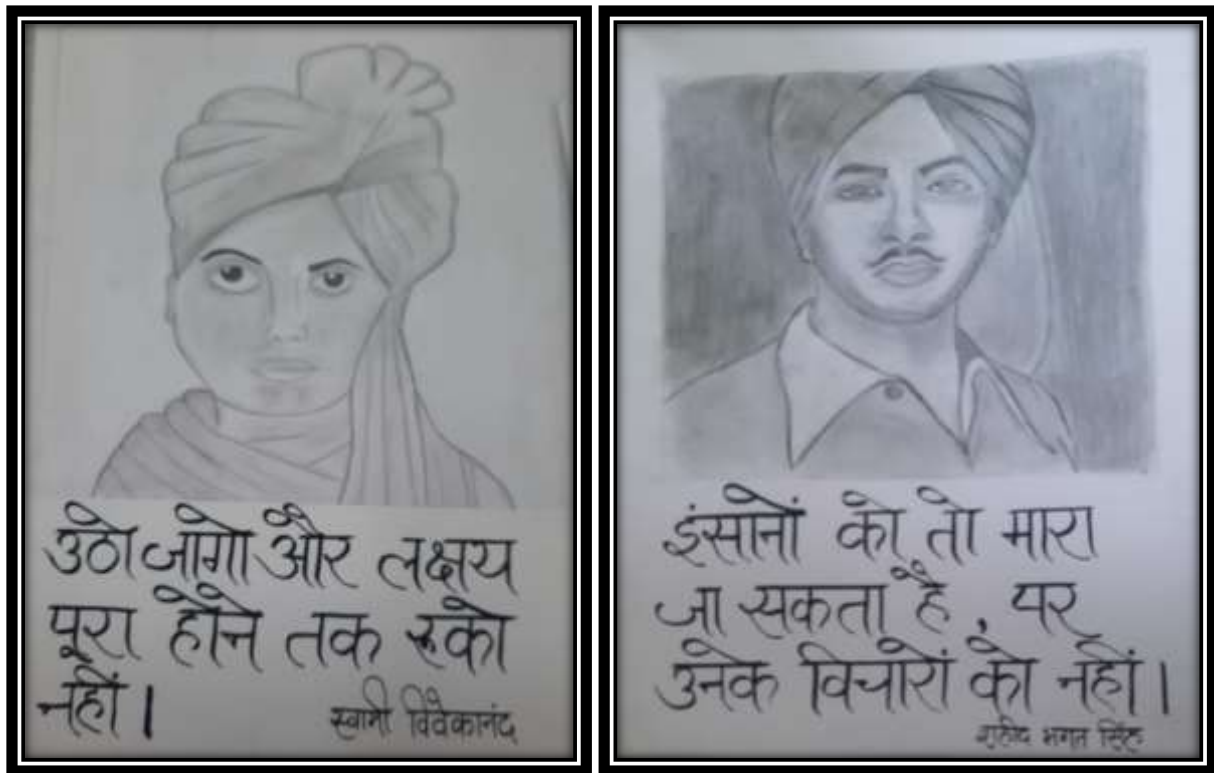 उठो जागो और लक्षय
पूरा होने तक रुको
नहीं।
स्वामी विवेकानंद
इंसानों को तो मारा
जा सकता है, पर
उनके विचारों को नहीं।
शहीद भगत सिंह